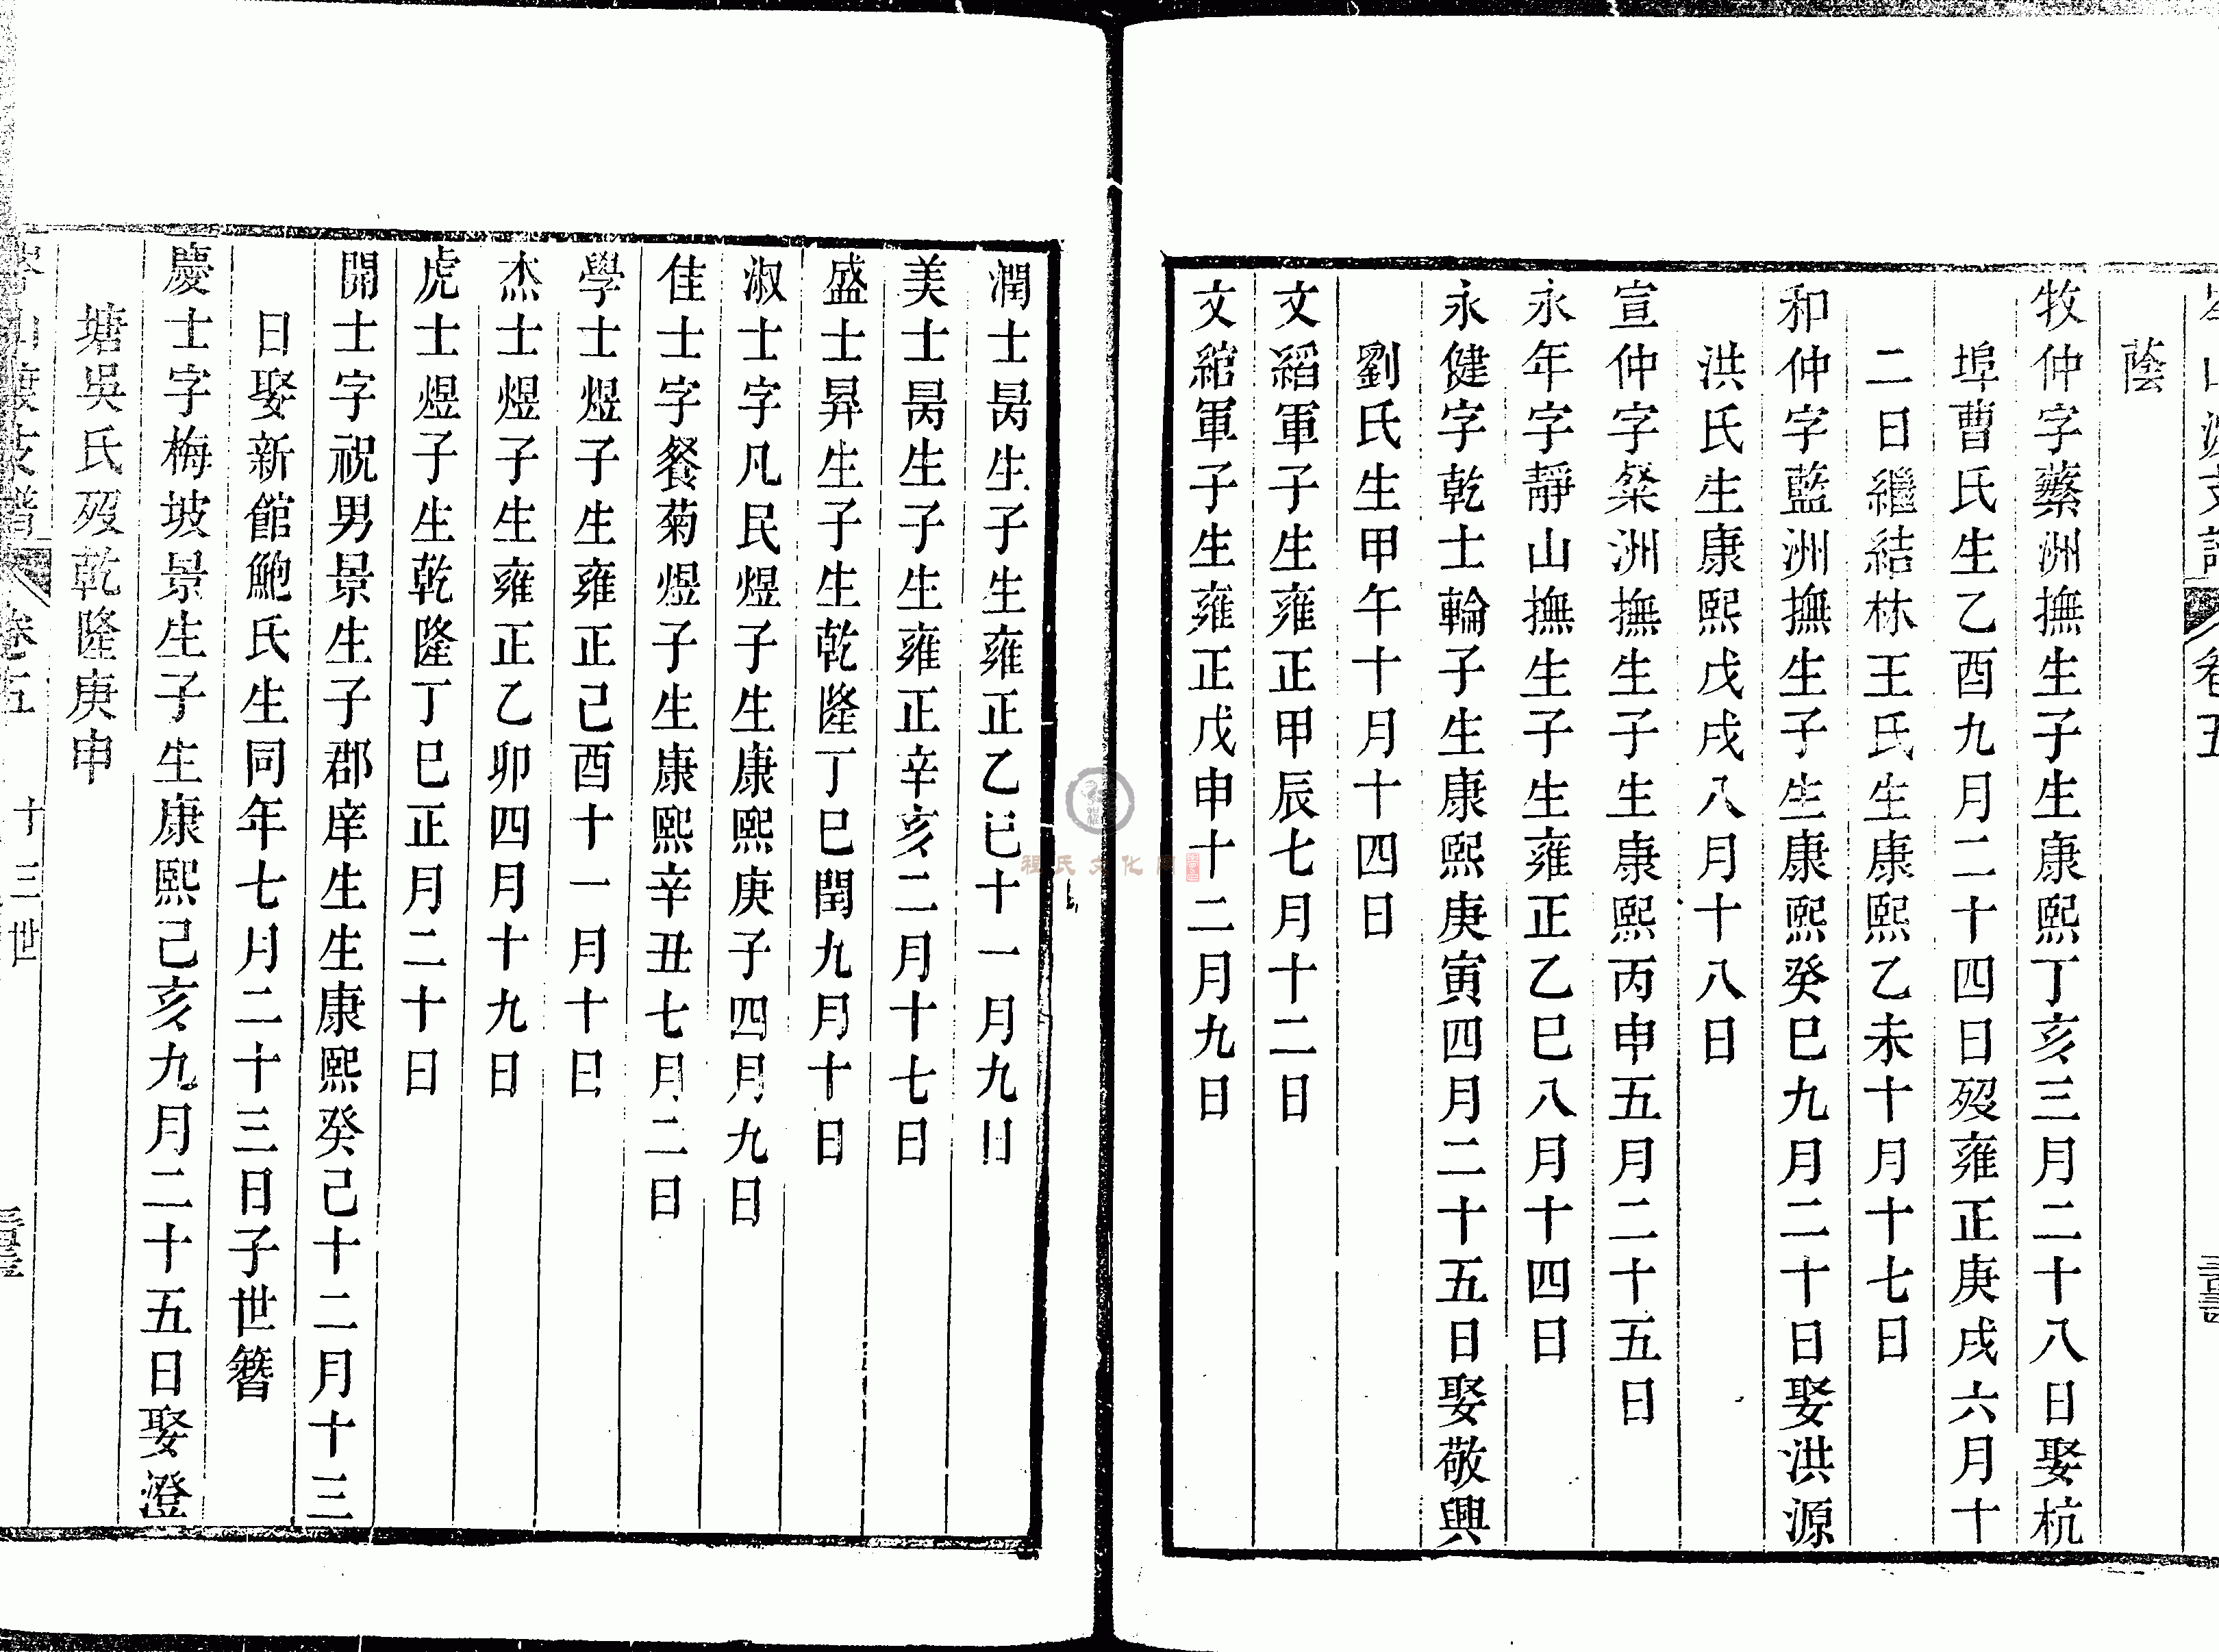 山渡支譜 卷五
蔭
牧仲字蘩洲撫生子生康熙丁亥三月二十八日娶杭
埠曹氏生乙酉九月二十四日歿雍正庚戌六月十
二日繼結林王氏生康熙乙未十月十七日
和仲字藍洲撫生子生康熙癸巳九月二十日娶洪源
洪氏生康熙戊戌八月十八日
宣仲字粲洲撫生子生康熙丙申五月二十五日
永年字靜山撫生子生雍正乙巳八月十四日
永健字乾士輪子生康熙庚寅四月二十五日娶敬興
劉氏生甲午十月十四日
文縚軍子生雍正甲辰七月十二日
文綰軍子生雍正戊申十二月九日
程氏文化网
潤士昺生子生雍正乙巳十一月九日
美士昺生子生雍正辛亥二月十七日
盛士昇生子生乾隆丁巳閏九月十日
淑士字凡民煜子生康熙庚子四月九日
佳士字餐菊煜子生康熙辛丑七月二日
學士煜子生雍正己酉十一月十日
杰士煜子生雍正乙卯四月十九日
虎士煜子生乾隆丁巳正月二十日
開士字祝男景生子郡庠生生康熙癸己十二月十三
日娶新館鮑氏生同年七月二十三日子世簪
慶士字梅坡景生子生康熙己亥九月二十五日娶澄
塘吳氏歿乾隆庚申
岑山渡支譜 卷五 十三世